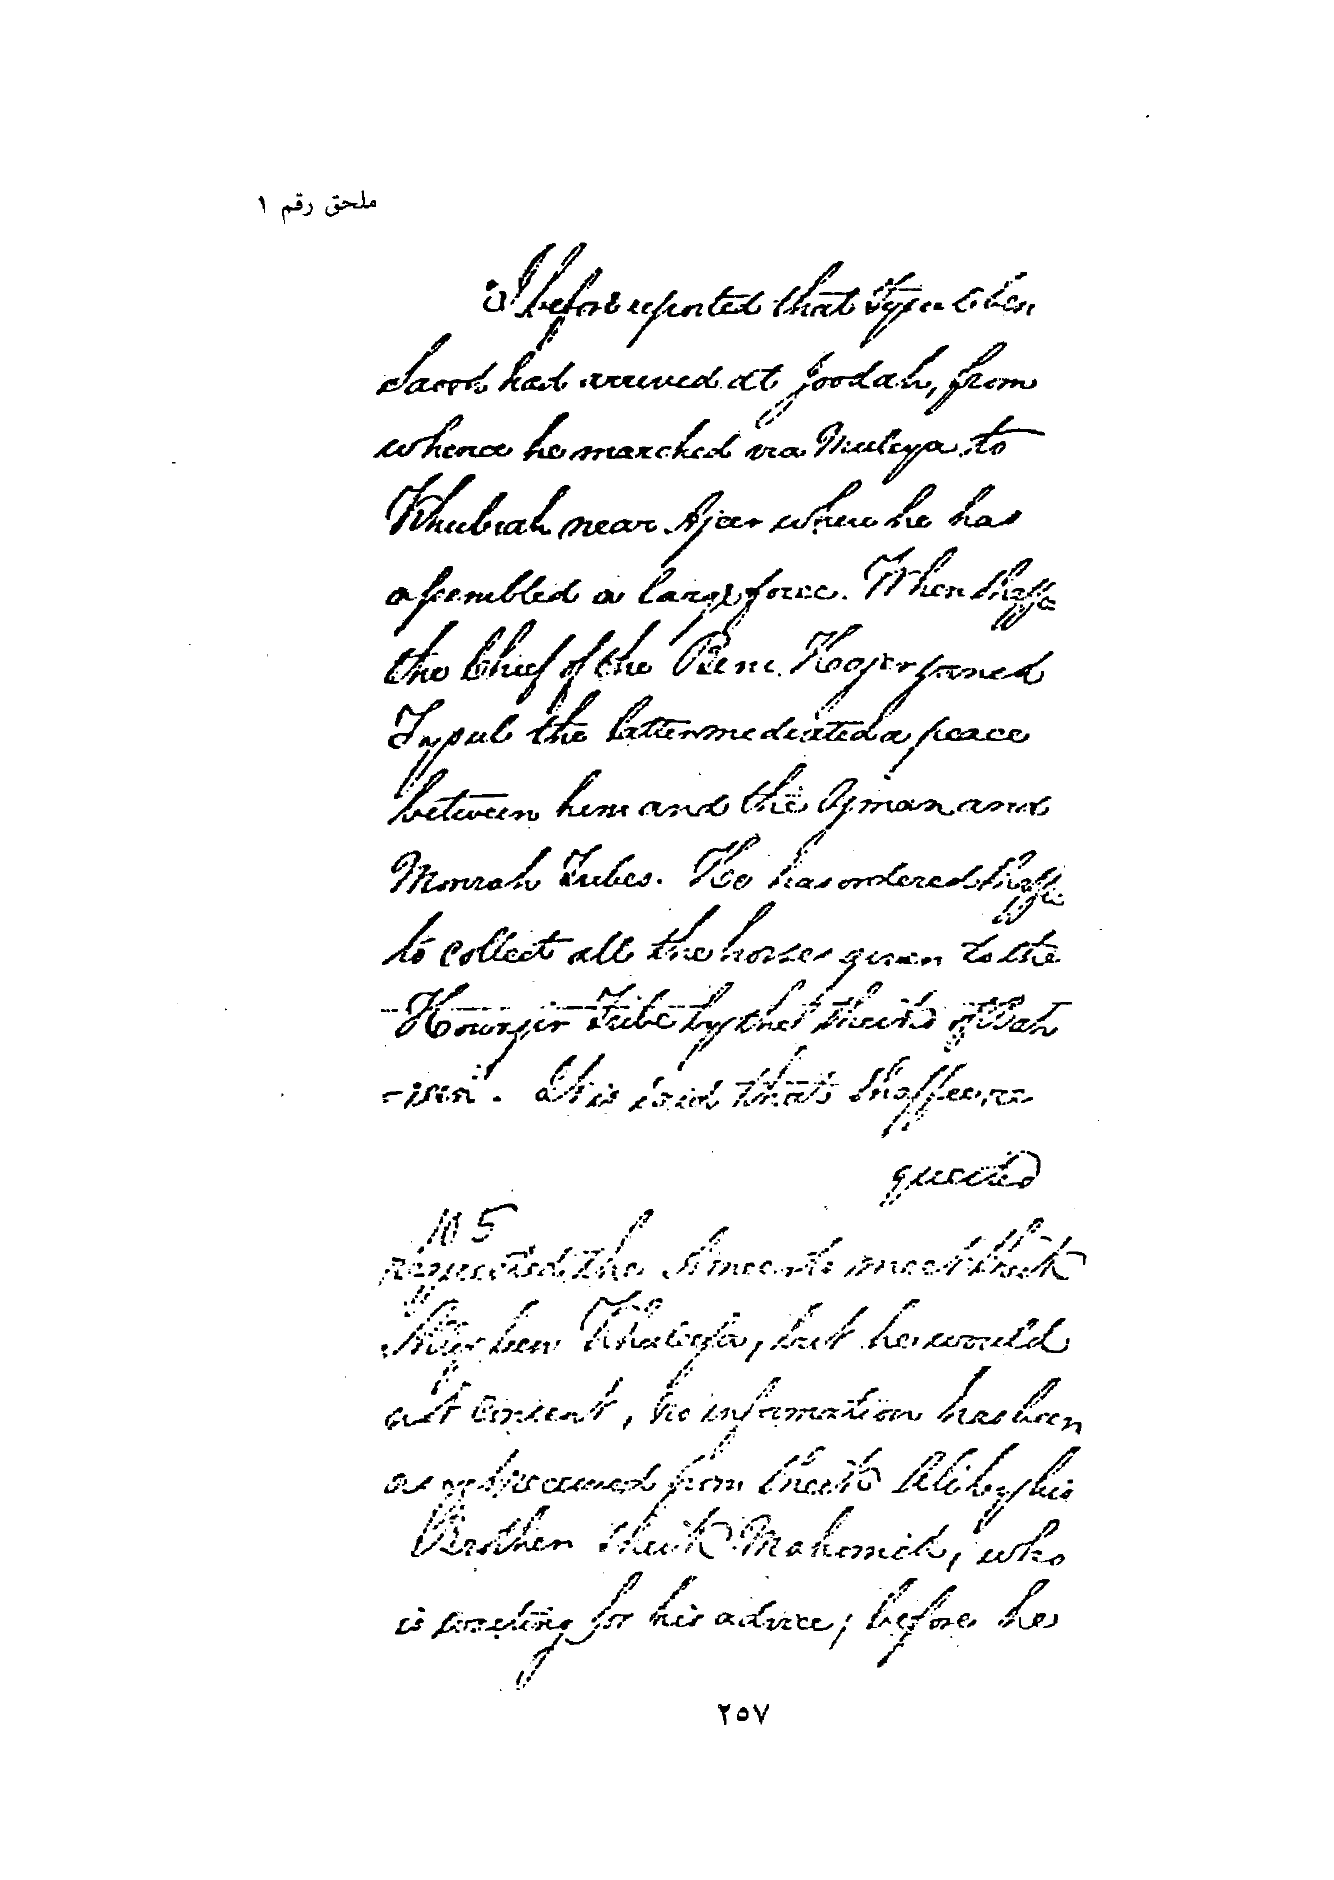 ملحق رقم ١
I before reported that Fysul ben
Saood had arrived at Joodah, from
whence he marched via Muleya to
Khubrah near Ajeer where he has
assembled a large force. When Shaffee
the Chief of the Beni Hajer joined
Fysul the latter mediated a peace
between him and the Ajman and
Monrah Tribes. He has ordered Shaffee
to collect all the horses given to the
Howajir Tribe by the Sheikh of Bah
-rein. It is said that Shaffee re
quested
No 5
requested the Ameer to meet Sheik
Aly ben Khuleefa, but he would
not consent, no information has been
as yet received from Sheik Ali by his
Brother Sheik Mahomed, who
is waiting for his advice, before he
٢٥٧